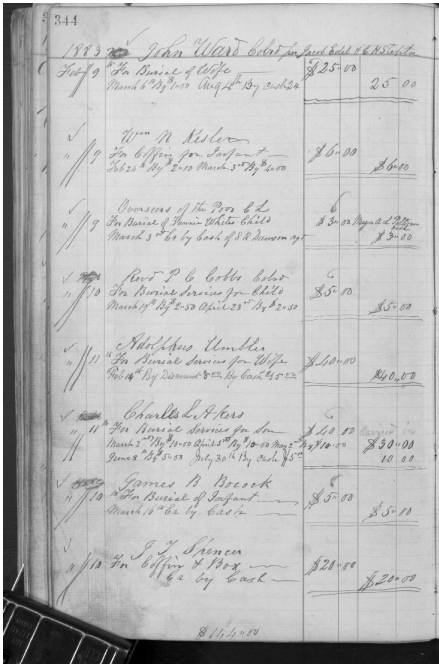 344
1883 John Ward Colod per Jacob Edd & C H
Feb 9th For Burial of Wife $25-00
March 6th By $1-00 Aug 4th By Cash 24 25 00
Wm N Kesler
" 9 For Coffin for Infant $6-00
Feb 24th By $2-00 March 3rd By $4-00 $6-00
Overseers of the Poor C L
" 9 For Burial of White Child $3-00
March 3rd Cr by Cash of S R Agt $3-00
Revd P C Cobbs Colod
" 10 For Burial Services for Child $5-00
March 19th By $2-50 April 23rd By $2-50 $5-00
Adolphus Umbler
" 11th For Burial Services for Wife $40-00
Feb 14th By Discount By Cash $40.00
Charles L Akers
" 11th For Burial Services for Son $40 00
March 2nd By $10-00 April 5th By $10-00 May 2nd By $10-00 $30-00
June 8th By $5-00 July 30th By Cash $5 10 00
James B Bocock
" 10th For Burial of Infant $5-00
March 16th Cr by Cash $5-00
J T Spencer
" 10 For Coffin & Box $20-00
Cr by Cash $20-00
$144-00